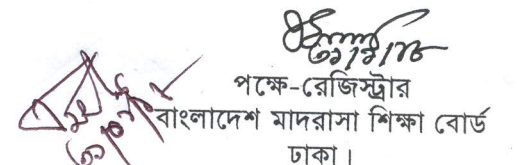 পক্ষে-রেজিস্ট্রার
বাংলাদেশ মাদরাসা শিক্ষা বোর্ড
ঢাকা।